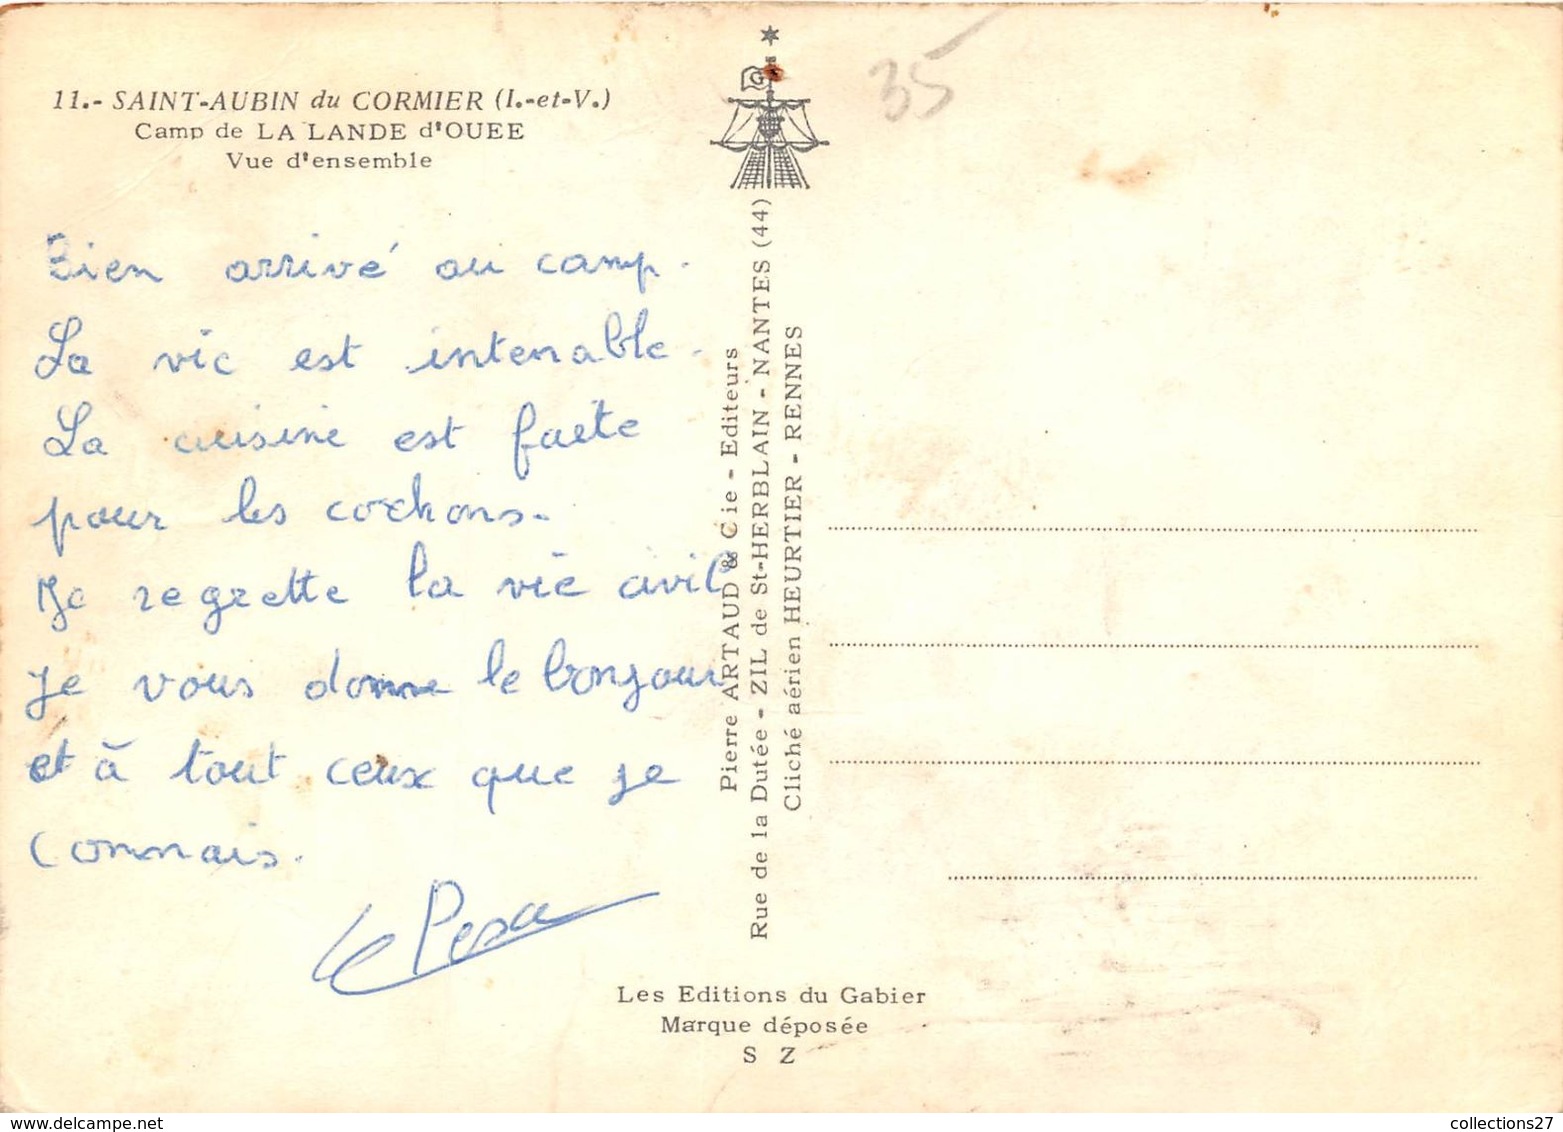 11.- SAINT-AUBIN du CORMIER (I.-et-V.)
Camp de LA LANDE d'OUEE
Vue d'ensemble
Bien arrivé au camp.
La vie est intenable.
La cuisine est faite
pour les cochons.
Je regrette la vie civil
Je vous donne le bonjour
et à tout ceux que je
connais.
Le
G
35
Pierre ARTAUD & Cie - Editeurs
Rue de la Dutée - ZIL de St-HERBLAIN - NANTES (44)
Cliché aérien HEURTIER - RENNES
Les Editions du Gabier
Marque déposée
S Z
collections27